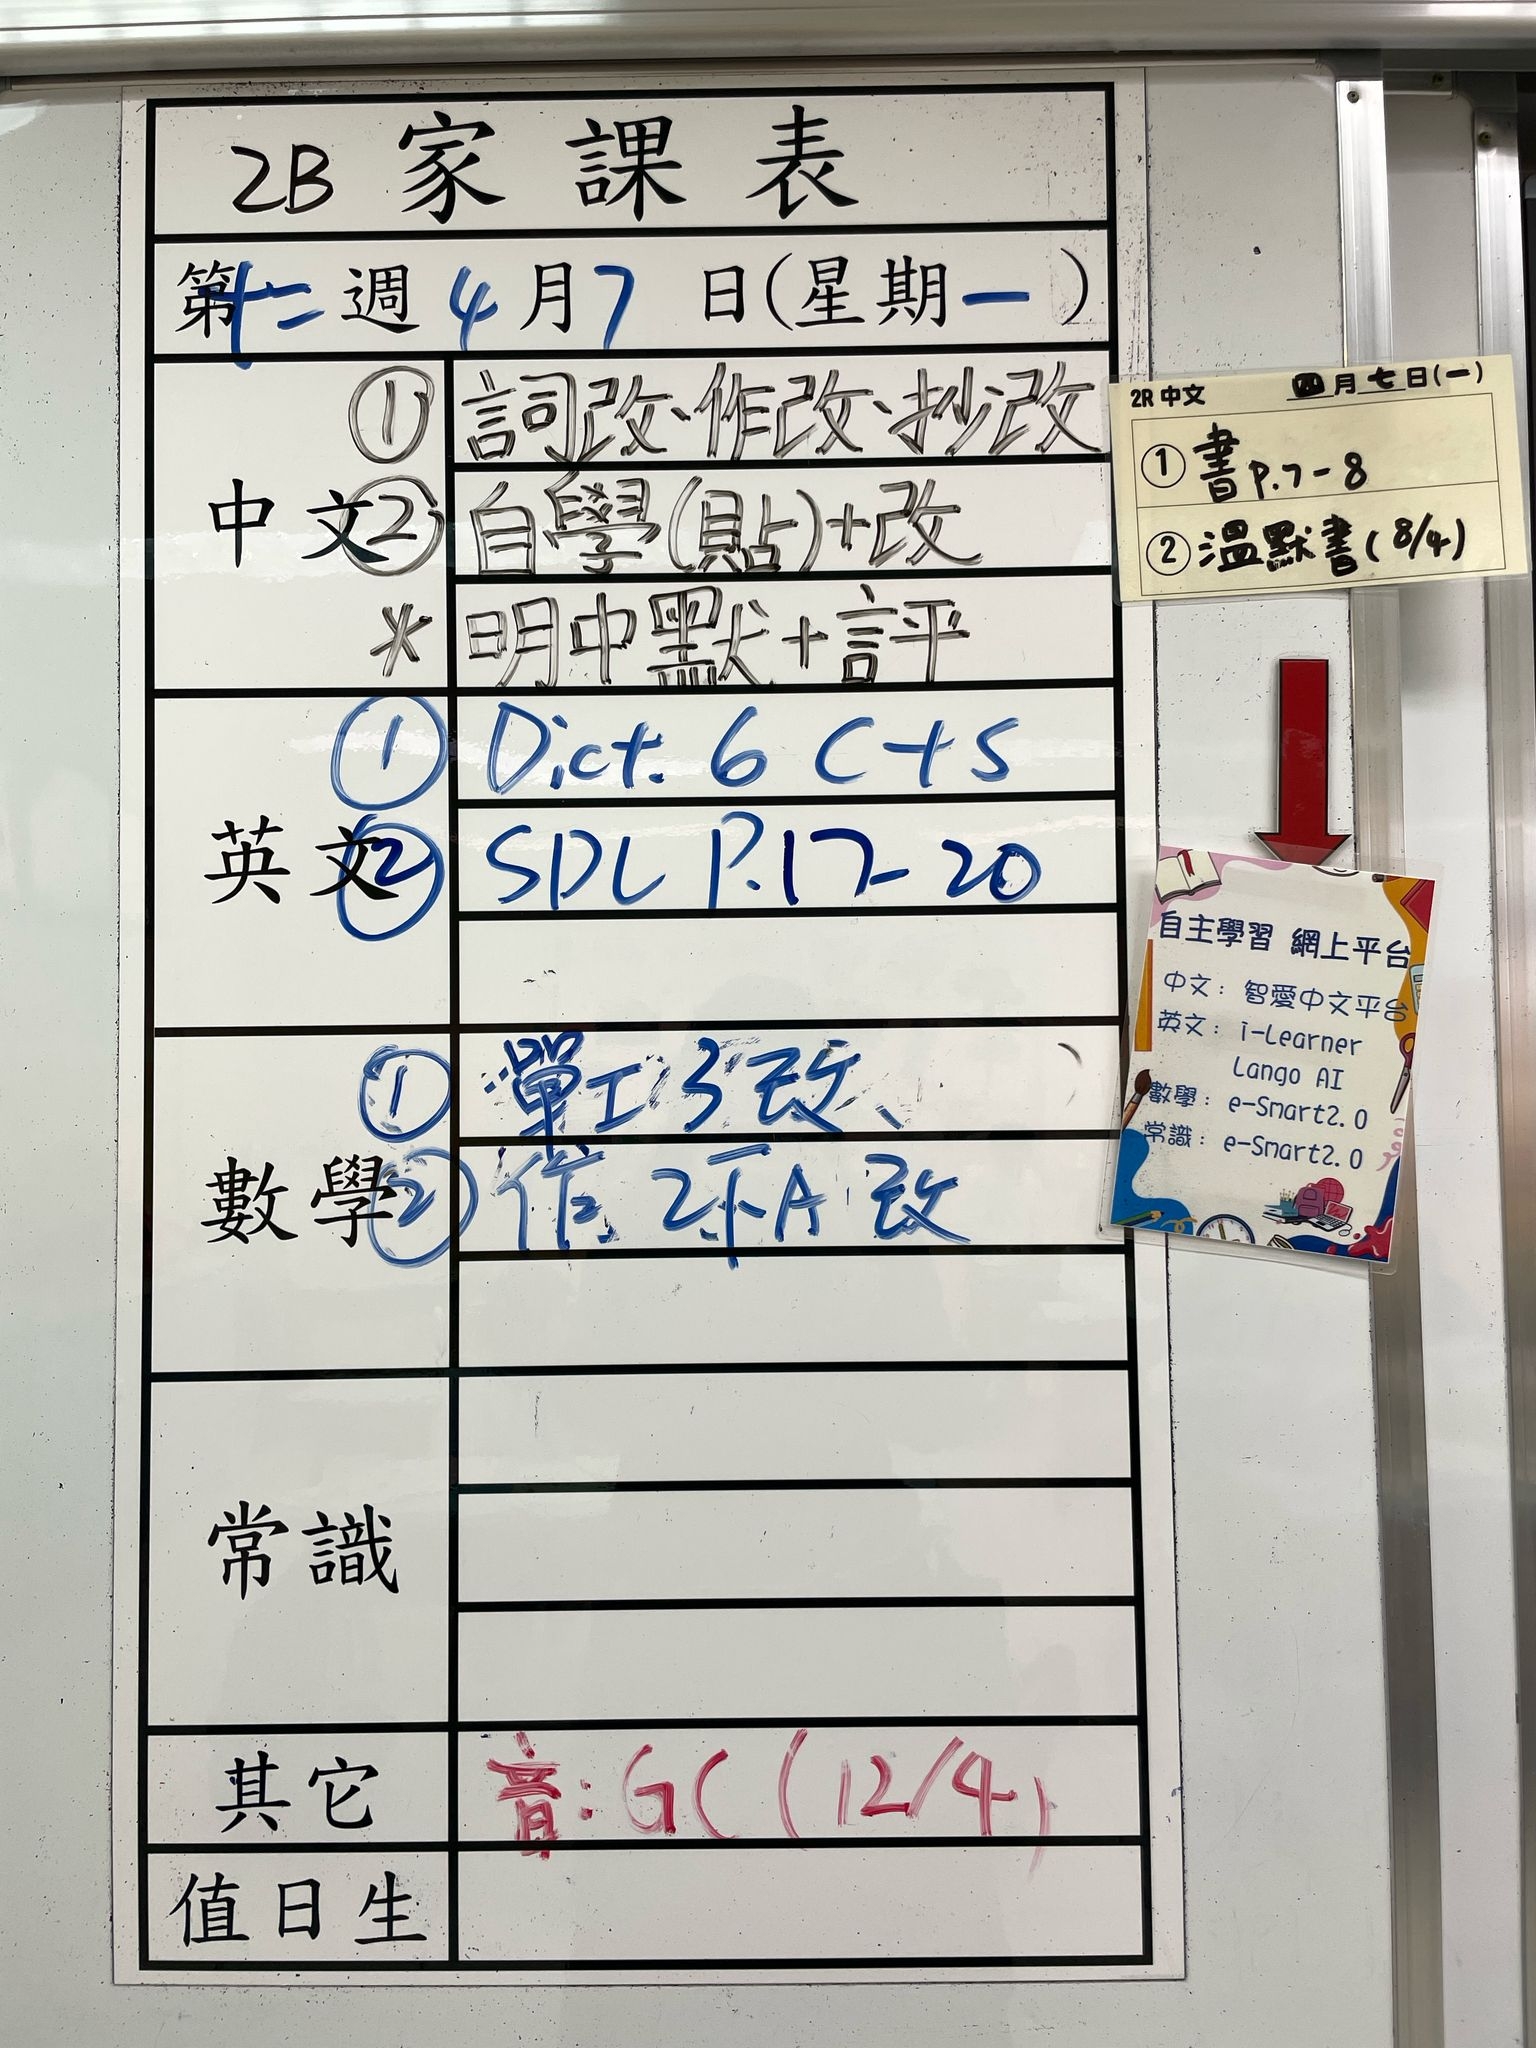 2B 家課表
第十二週 4月7日(星期一)
中文
① 詞改、作改、抄改
② 自學(貼)+改
* 明中默+評
英文
① Dict. 6 C+S
② SDL P.17-20
數學
① 單工3改、
② 作 2下A 改
常識
其它
音:GC(12/4)
值日生
2R 中文 四月七日(一)
① 書P.7-8
② 溫默書(8/4)
自主學習 網上平台
中文: 智愛中文平台
英文: i-Learner
Lango AI
數學: e-Smart2.0
常識: e-Smart2.0